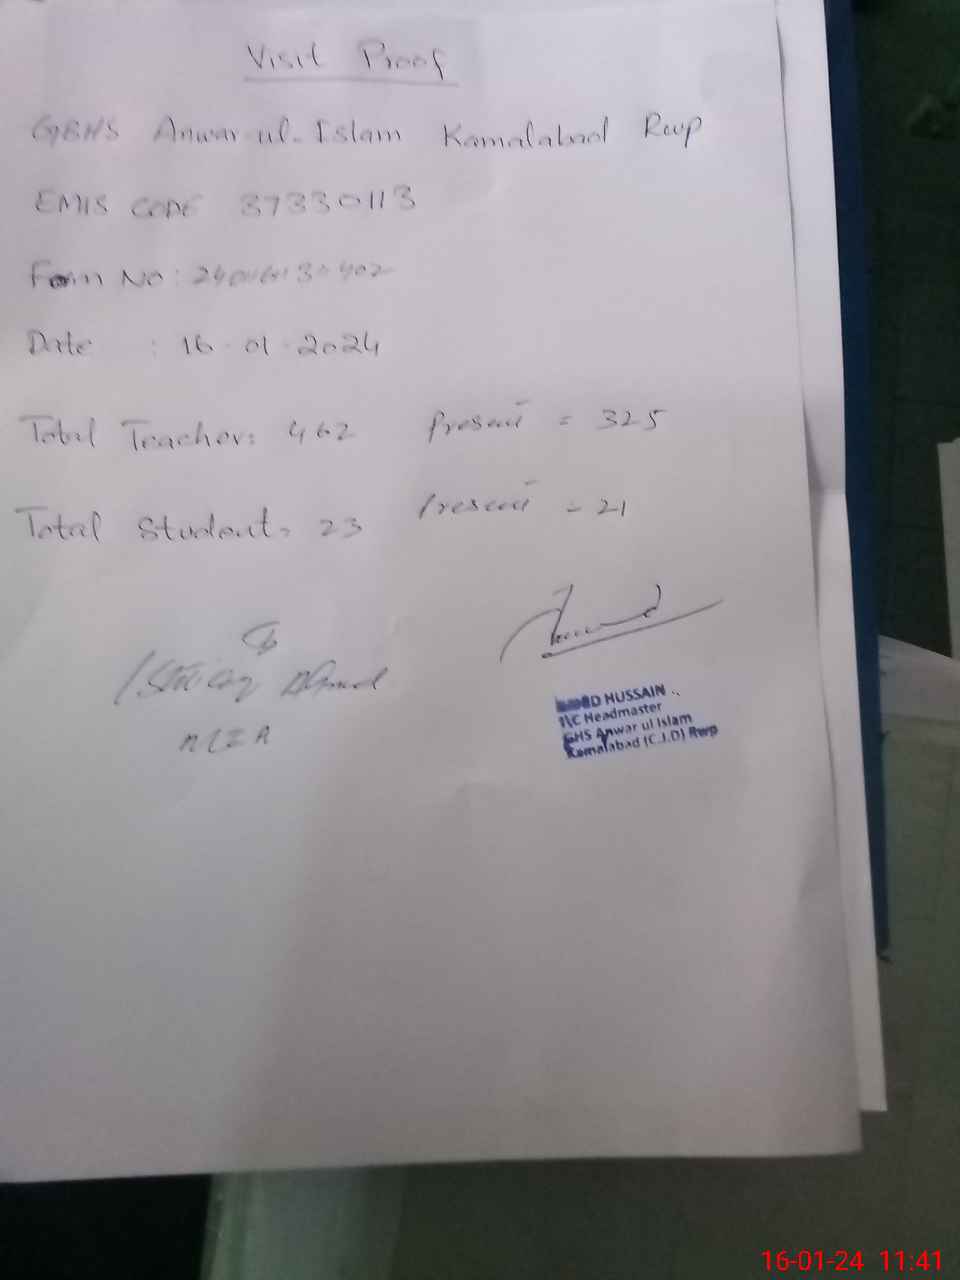 Visit Proof
GBHS Anwar-ul-Islam Kamalabad Rwp
EMIS CODE 37330113
Form No:
Date : 16-01-2024
Total Teacher: 462 Present = 325
Total Student: 23 Present = 21
Ahmad
HUSSAIN
I\C Headmaster
GHS Anwar ul Islam
Kamalabad (C.J.D) Rwp
16-01-24 11:41